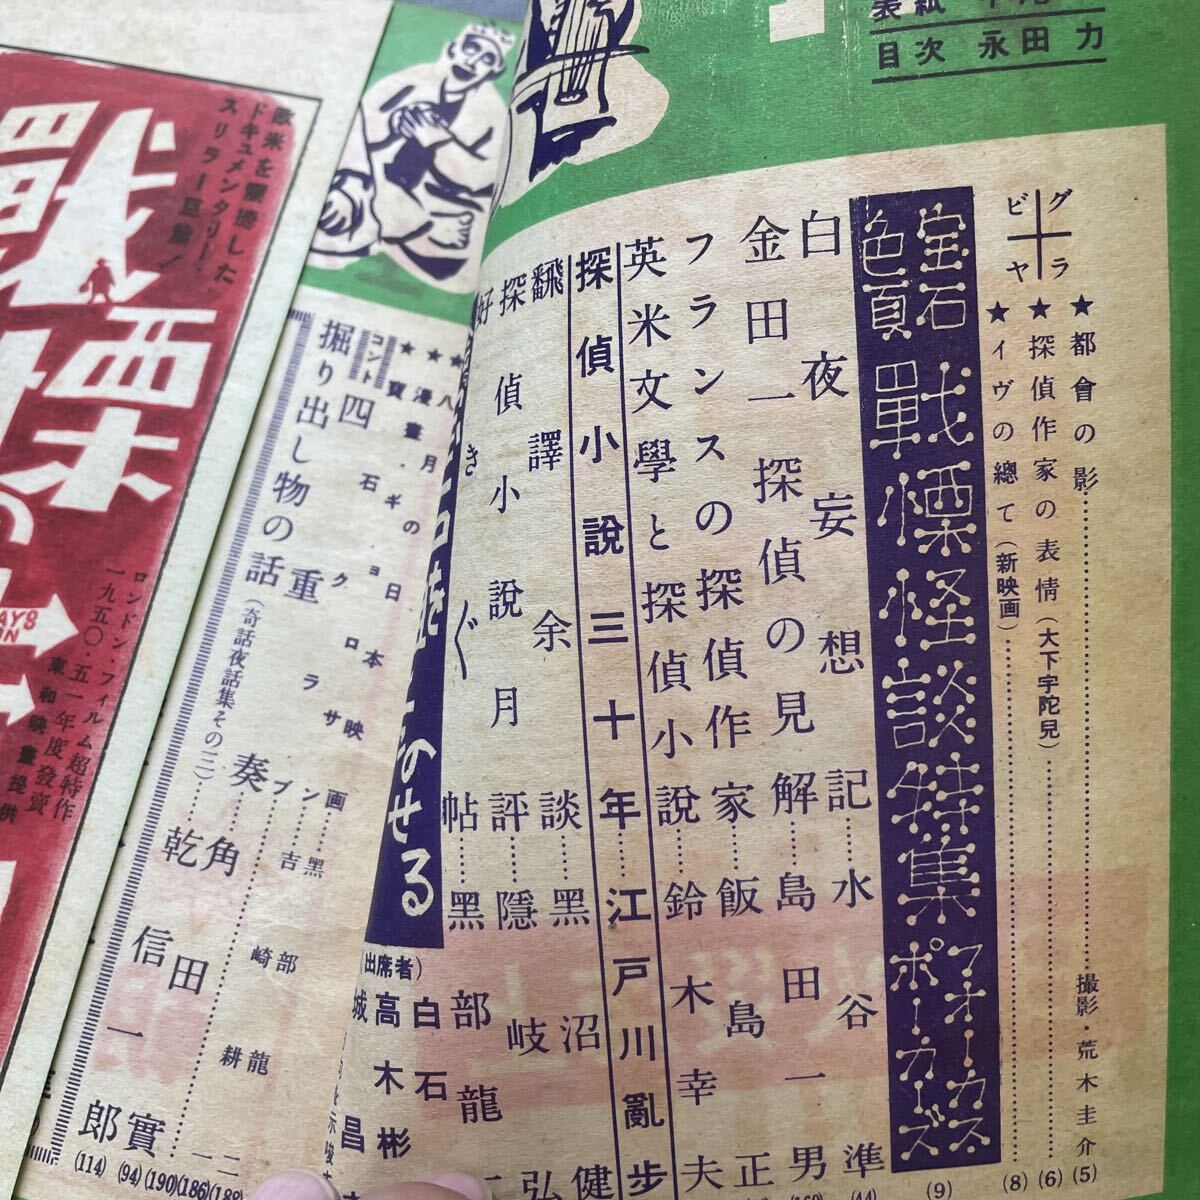 目次 永田力
グラビヤ
★都會の影……撮影・荒木圭介(5)
★探偵作家の表情(大下宇陀兒)……(6)
★イヴの總て(新映画)……(8)
宝石色頁 戰慄怪談特集 フオーカスポーカーズ (9)
白夜妄想記……水谷準
金田一探偵の見解……島田一男
フランスの探偵作家……飯島正
英米文學と探偵小說……鈴木幸夫
探偵小說三十年 江戸川亂步
飜譯余談……黑沼健
探偵小說月評……隱岐弘
好きぐ帖……黑部龍二
(出席者)
白石
高木彬
城昌
★八月の日本映画……黑部龍二
★漫畫・ギョロサン……吉崎耕一
★寶石クラブ
コント 四重奏……角田實
(188)
(186)
(190)
(94)
掘り出し物の話(奇話夜話集その三)……乾信一郎
(114)
欧米を震撼した
ドキュメンタリー・
スリラー巨篇!
戰慄の
ロンドン・フィルム超特作
一九五〇・五一年度發賣
東和映畫提供